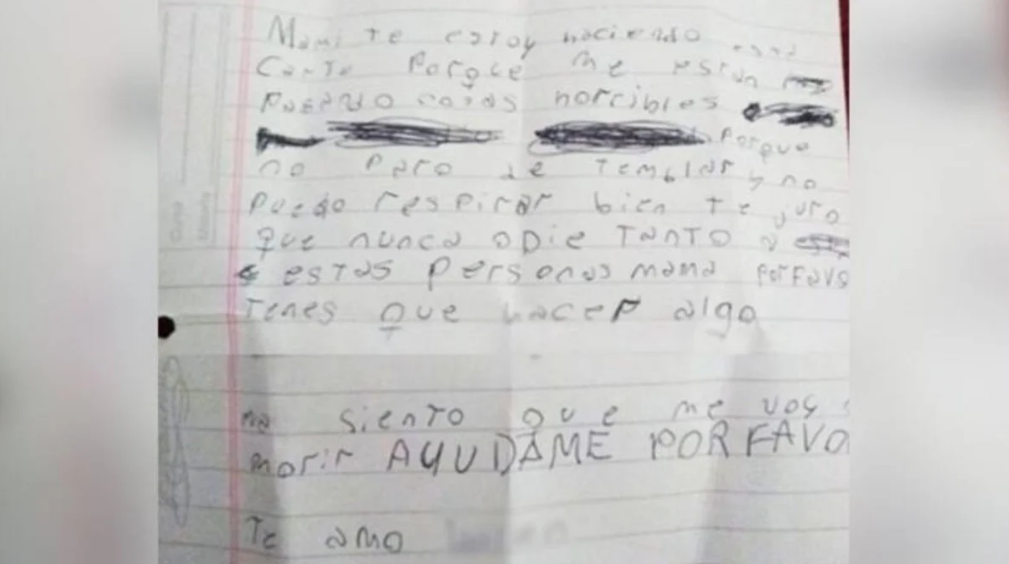 Mami te estoy haciendo esta
Carta Porque me están
Pasando cosas horribles
Porque
no Paro de Temblar y no
Puedo respirar bien Te juro
que nunca odie TanTo a
estas Personas mama PorFavo
Tenes que hacer algo
siento que me voy
morir AYUDAME POR FAVO
Te amo